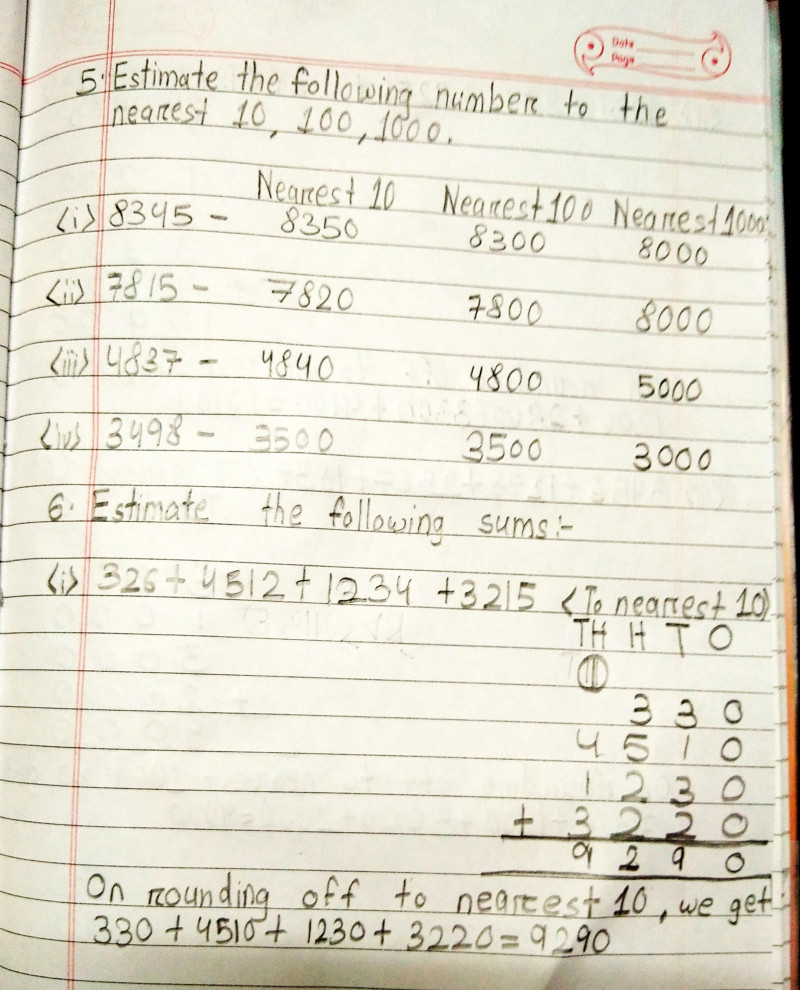 Date
Page
5. Estimate the following number to the
nearest 10, 100, 1000.
Nearest 10 Nearest 100 Nearest 1000
(i) 8345 - 8350 8300 8000
(ii) 7815 - 7820 7800 8000
(iii) 4837 - 4840 4800 5000
(iv) 3498 - 3500 3500 3000
6. Estimate the following sums:-
(i) 326 + 4512 + 1234 + 3215 (To nearest 10)
TH H T O
①
3 3 0
4 5 1 0
1 2 3 0
+ 3 2 2 0
9 2 9 0
On rounding off to nearest 10, we get:
330 + 4510 + 1230 + 3220 = 9290